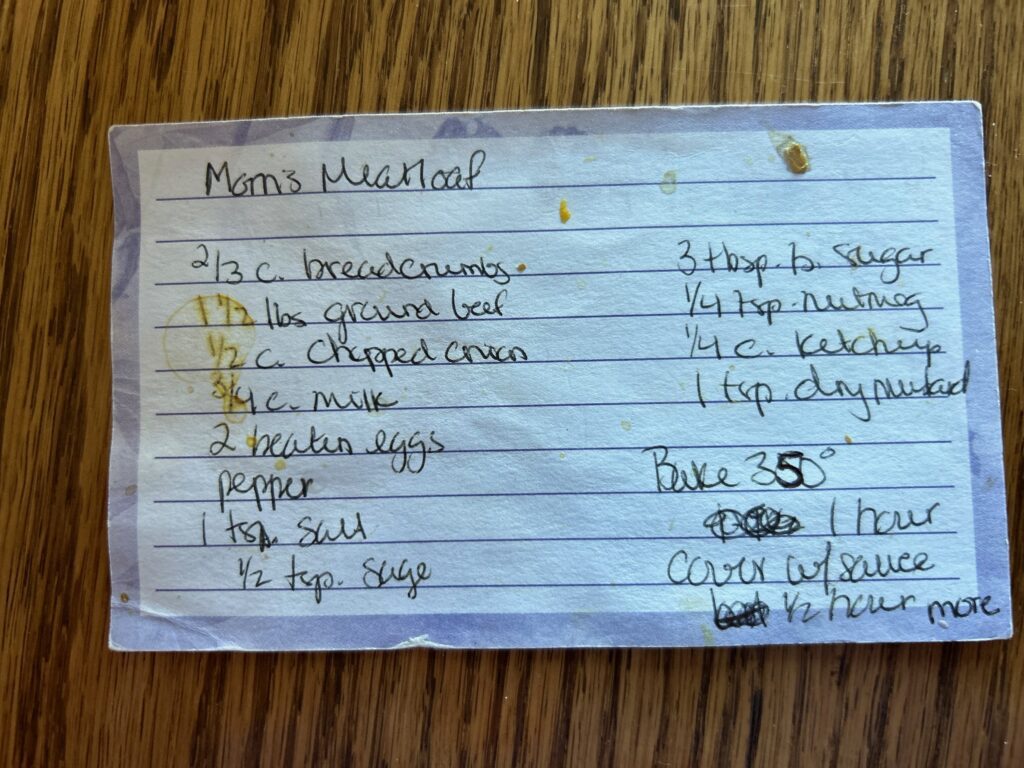 Mom's Meatloaf
2/3 c. breadcrumbs
1 1/2 lbs ground beef
1/2 c. Chopped onion
3/4 c. milk
2 beaten eggs
pepper
1 tsp. salt
1/2 tsp. sage
3 tbsp. b. sugar
1/4 tsp. nutmeg
1/4 c. ketchup
1 tsp. dry mustard
Bake 350°
1 hour
Cover w/ sauce
1/2 hour more